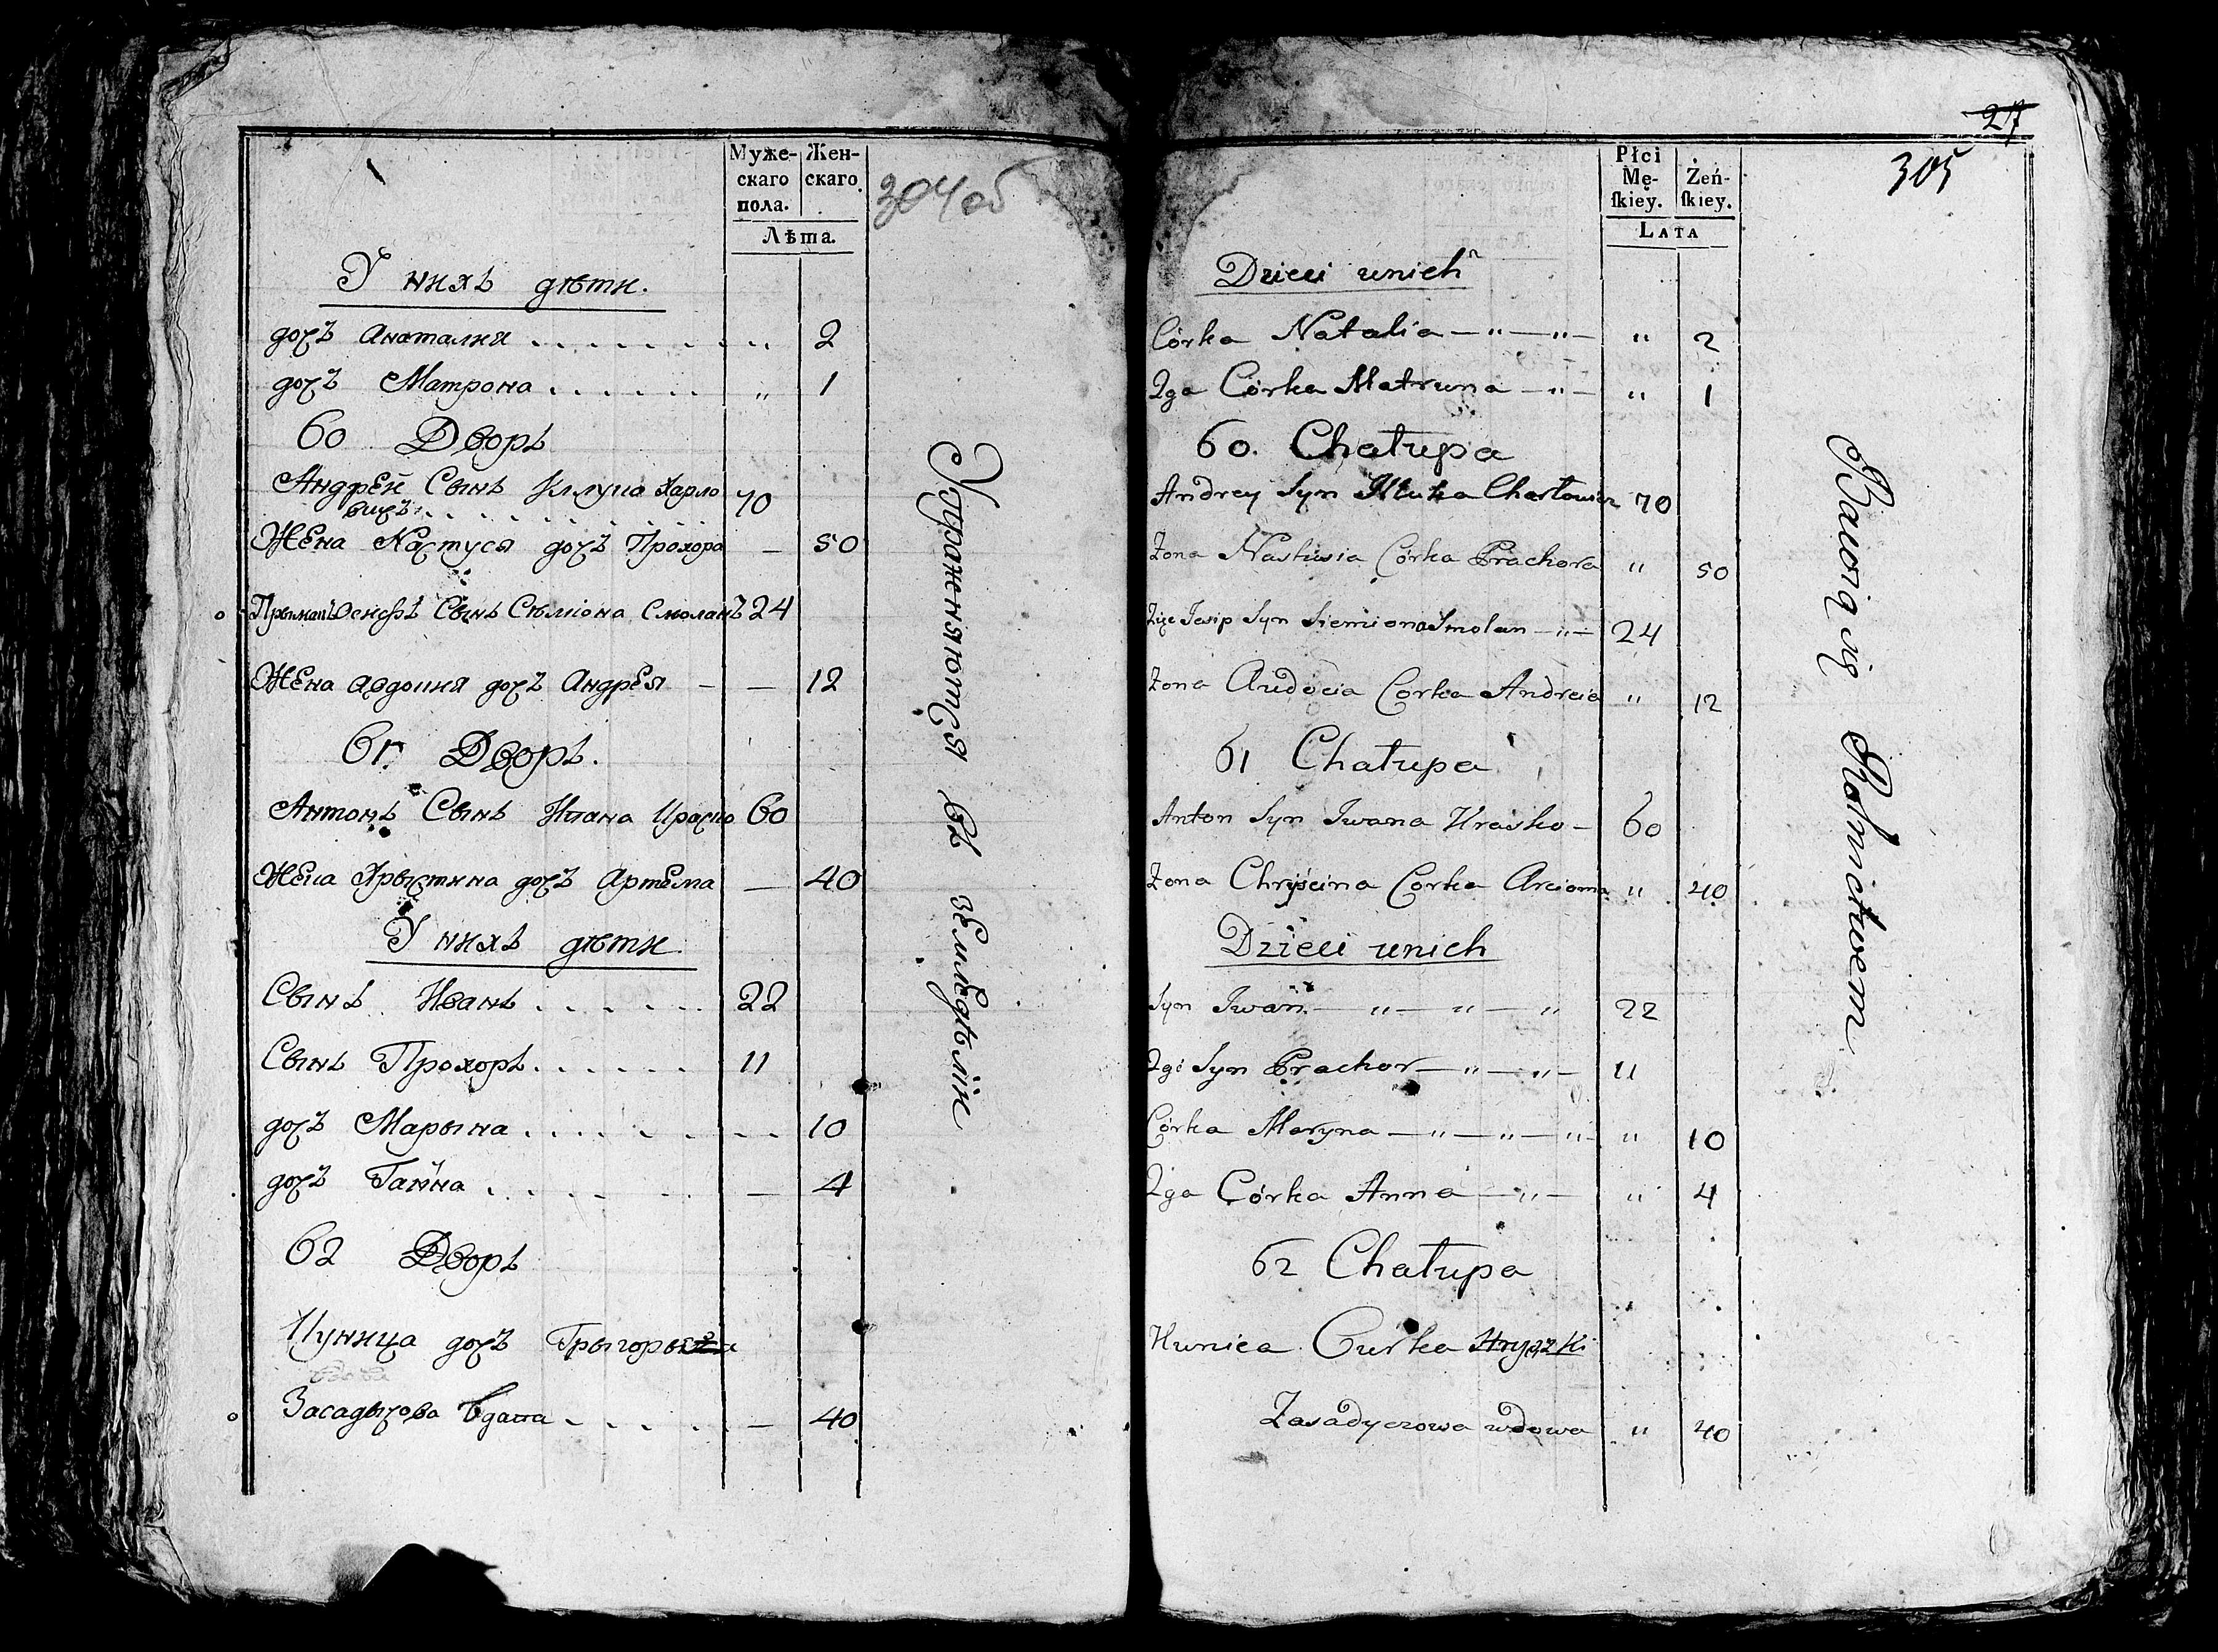 Муже-
скаго
пола.
Жен-
скаго
Лѣта.
304 об
У нихъ дѣти.
дочъ Анаталия 2
дочъ Матрона „ 1
60 Дворъ
Андрей Сынъ Илука Харло
вичъ 70
Жена Настуся дочъ Прохора — 50
Осифъ Сынъ Сѣмiона Смоланъ 24
Жена Авдоция дочъ Андрея — — 12
61 Дворъ.
Антонъ Сынъ Ивана 60
Жена Хрыстина дочъ Артема — 40
У нихъ дѣти
Сынъ Иванъ 22
Сынъ Прохоръ 11
дочъ Марына 10
дочъ Ганна — 4
62 Дворъ
дочъ
Засадычова вдова — 40
Упражняются въ земледѣлiи
27
305
Płci
Mę-
ſkiey.
Żeń-
ſkiey.
LATA
Dzieci unich
Córka Natalia — „ — „ — „ 2
2ga Córka Matruna — „ — „ 1
60. Chałupa
Andrey Syn Iłłuka Charłowicz 70
Żona Nastusia Córka Prachora „ 50
Zięć Josip Syn Siemiona Smolan — „ — 24
Żona Audocia Corka Andreia „ 12
61 Chałupa
Anton Syn Iwana Hrasko — 60
Żona Chryścina Corka Arcioma „ 40
Dzieci unich
Syn Iwan — „ — „ — „ 22
2gi Syn Prachor — „ — „ — 11
Córka Maryna — „ — „ — „ — „ 10
2ga Córka Anna — „ — „ 4
62 Chałupa
Hunica Curka Hryszki
Zasadyczowa wdowa „ 40
Bawią się Rolnictwem